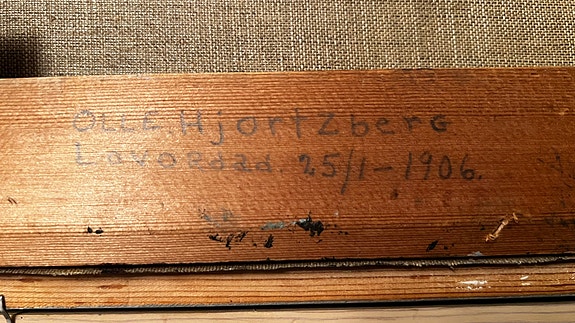 OLLE. HjortzberG
Lavoedad. 25/1 - 1906.